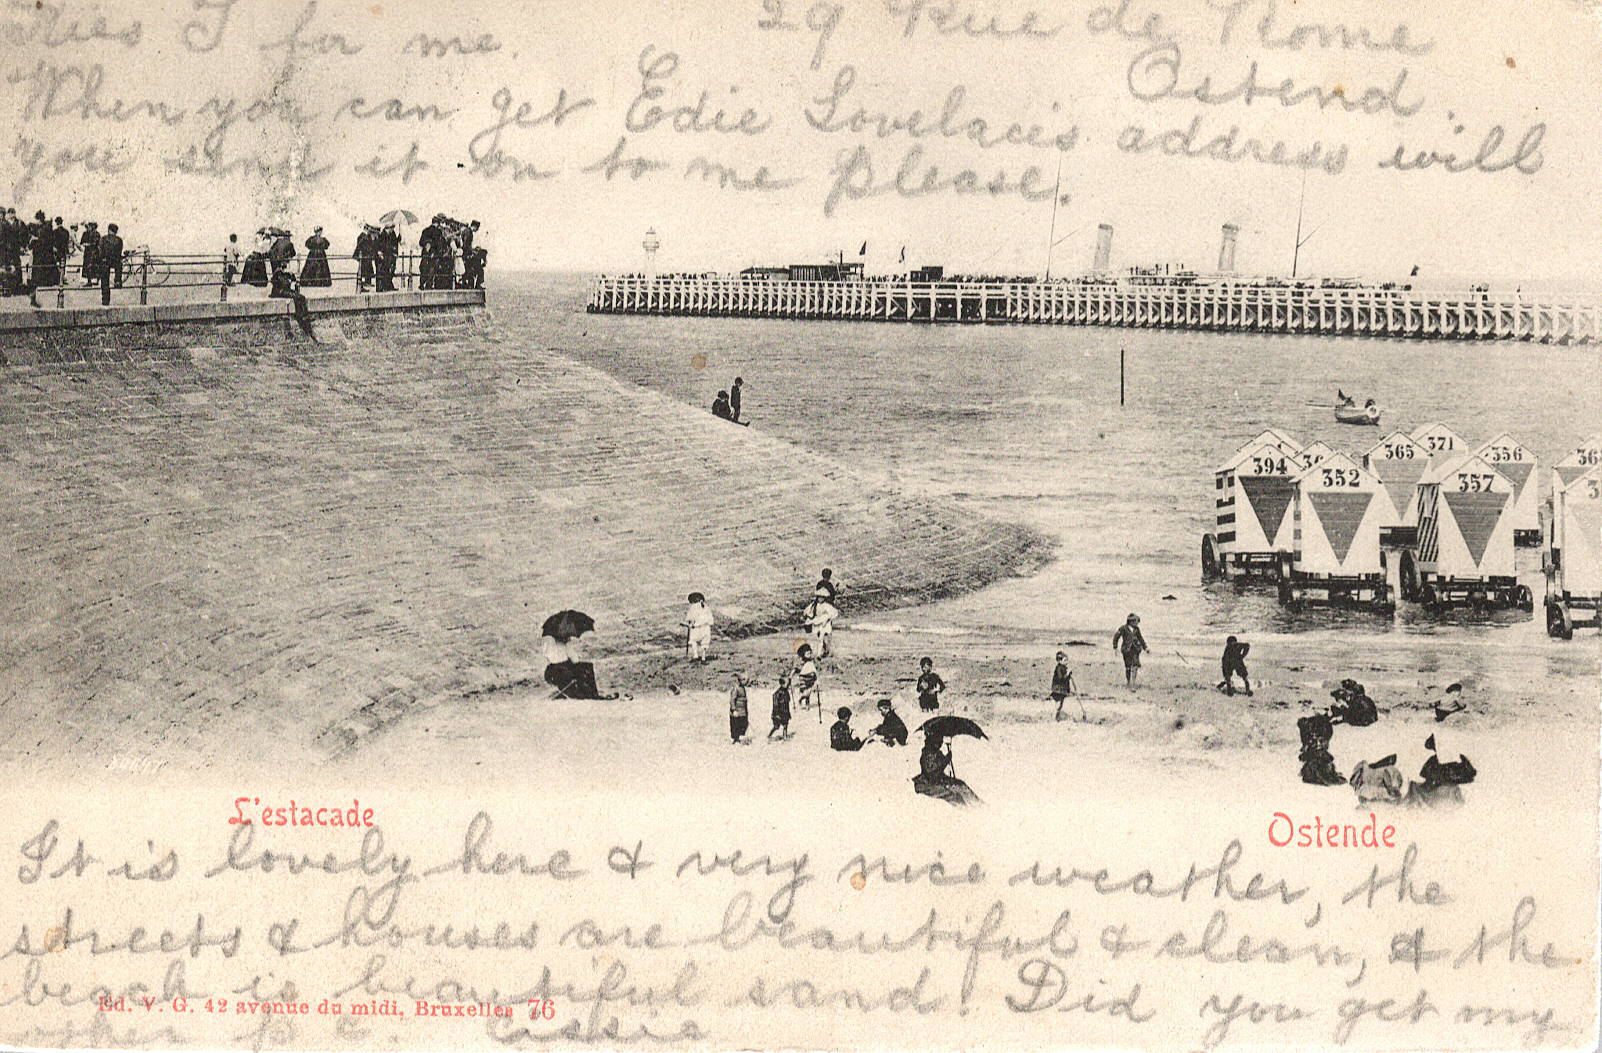 29 Rue de Rome
Ostend.
Kies I for me.
When you can get Edie Lovelacis address will
you send it on to me please.
394
352
365
371
356
357
L'estacade
Ostende
It is lovely here & very nice weather, the
streets & houses are beautiful & clean, & the
beach is beautiful sand! Did you get my
other p c. Cissie
Ed. V. G. 42 avenue du midi, Bruxelles 76